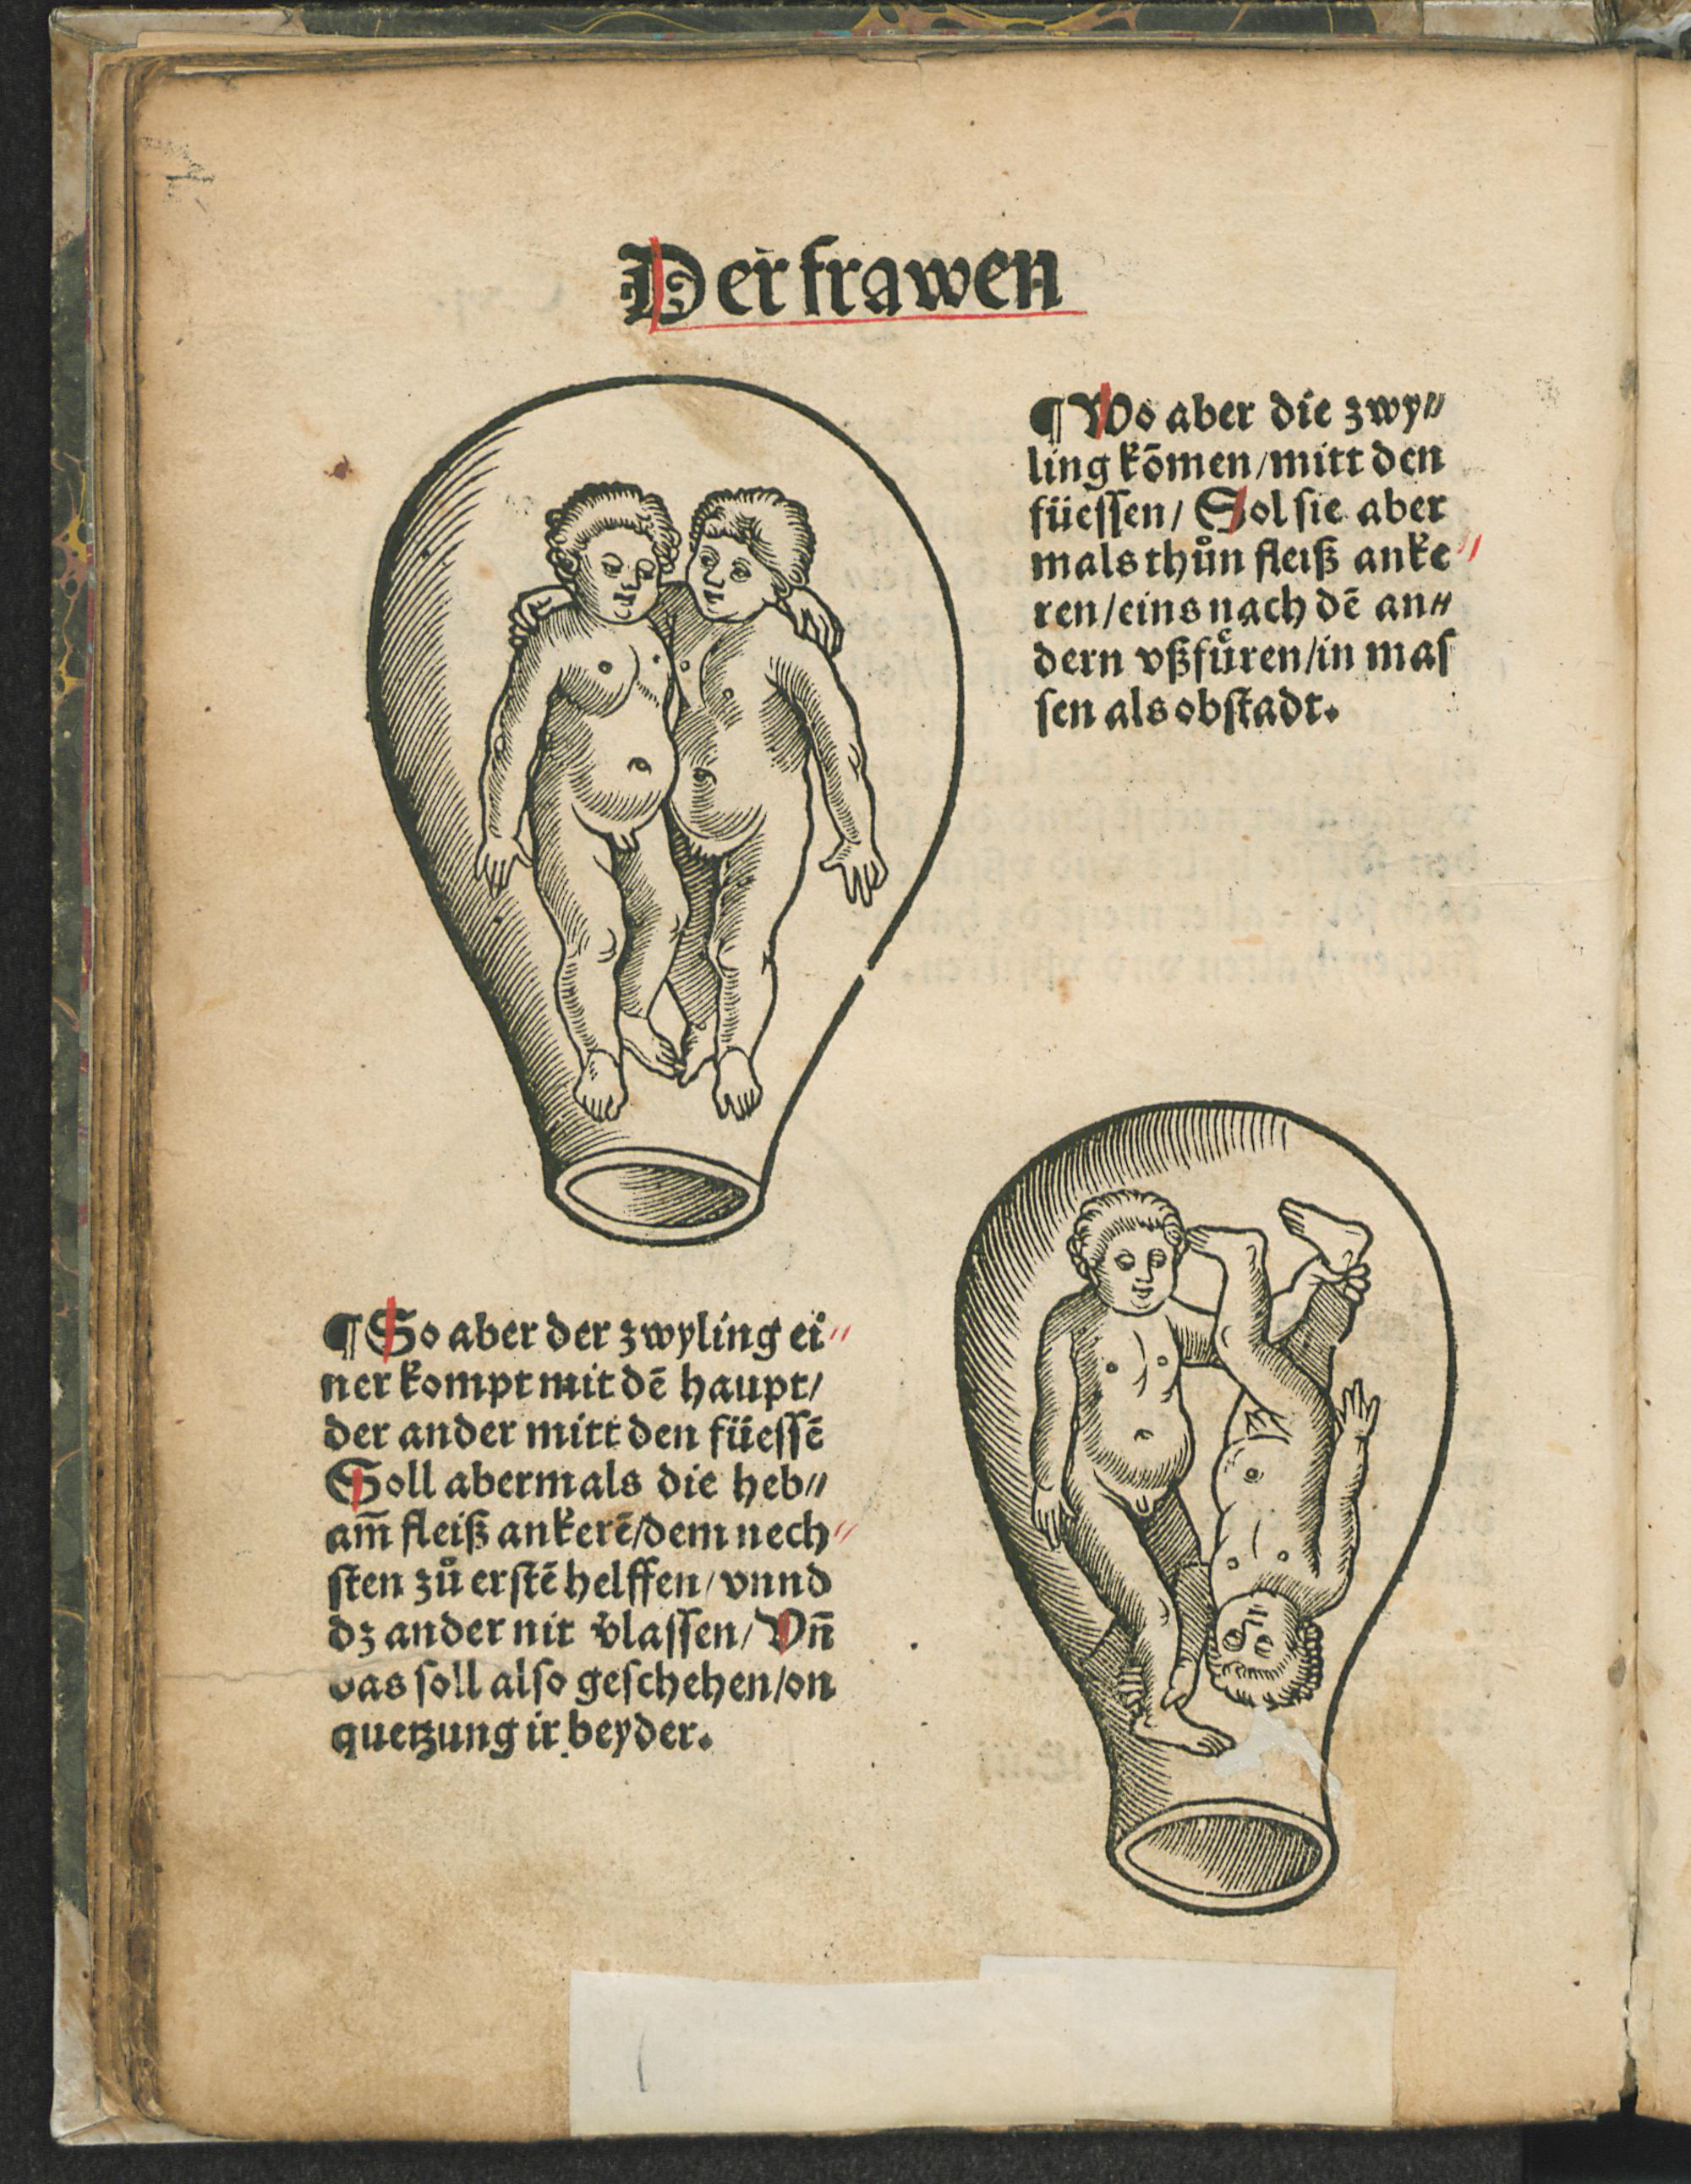 Der frawen
¶ Wo aber die zwy⸗
ling kōmen/mitt den
füessen/ Sol sie aber
mals thůn fleiß anke
ren/eins nach dē an⸗
dern vßfůren/in mas
sen als obstadt.
¶ So aber der zwyling ei
ner kompt mit dē haupt/
der ander mitt den füessē
Soll abermals die heb⸗
am̄ fleiß ankerē/dem nech
sten zů erstē helffen/vnnd
dz ander nit v̄lassen/Vn̄
das soll also geschehen/on
quetzung ir beyder.